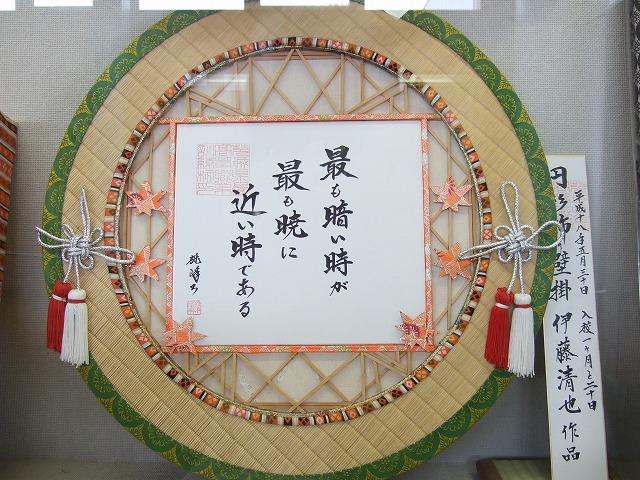 最も暗い時が
最も暁に
近い時である
平成十八年五月三十日 入校一ヶ月と二十日
壁掛 伊藤清也 作品